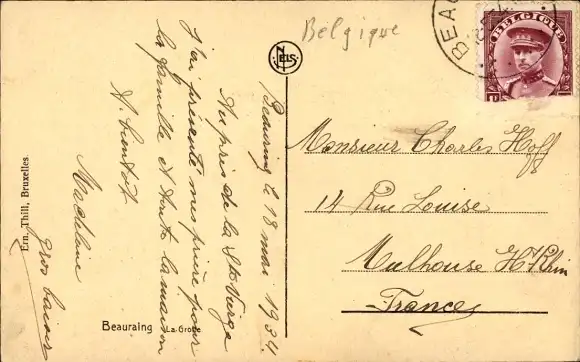 Belgique
BELGIQUE
BEAU
NELS
Beauring le 18 mai 1934.
Au près de la Ste Vierge
J'ai présenté mes prière pour
la famille et toute la maison
A. bientôt
Madeleine
gros baiser
Monsieur Charles Hoff
14 Rue Louise
Mulhouse H. Rhin
France
Ern. Thill, Bruxelles
Beauraing La Grotte